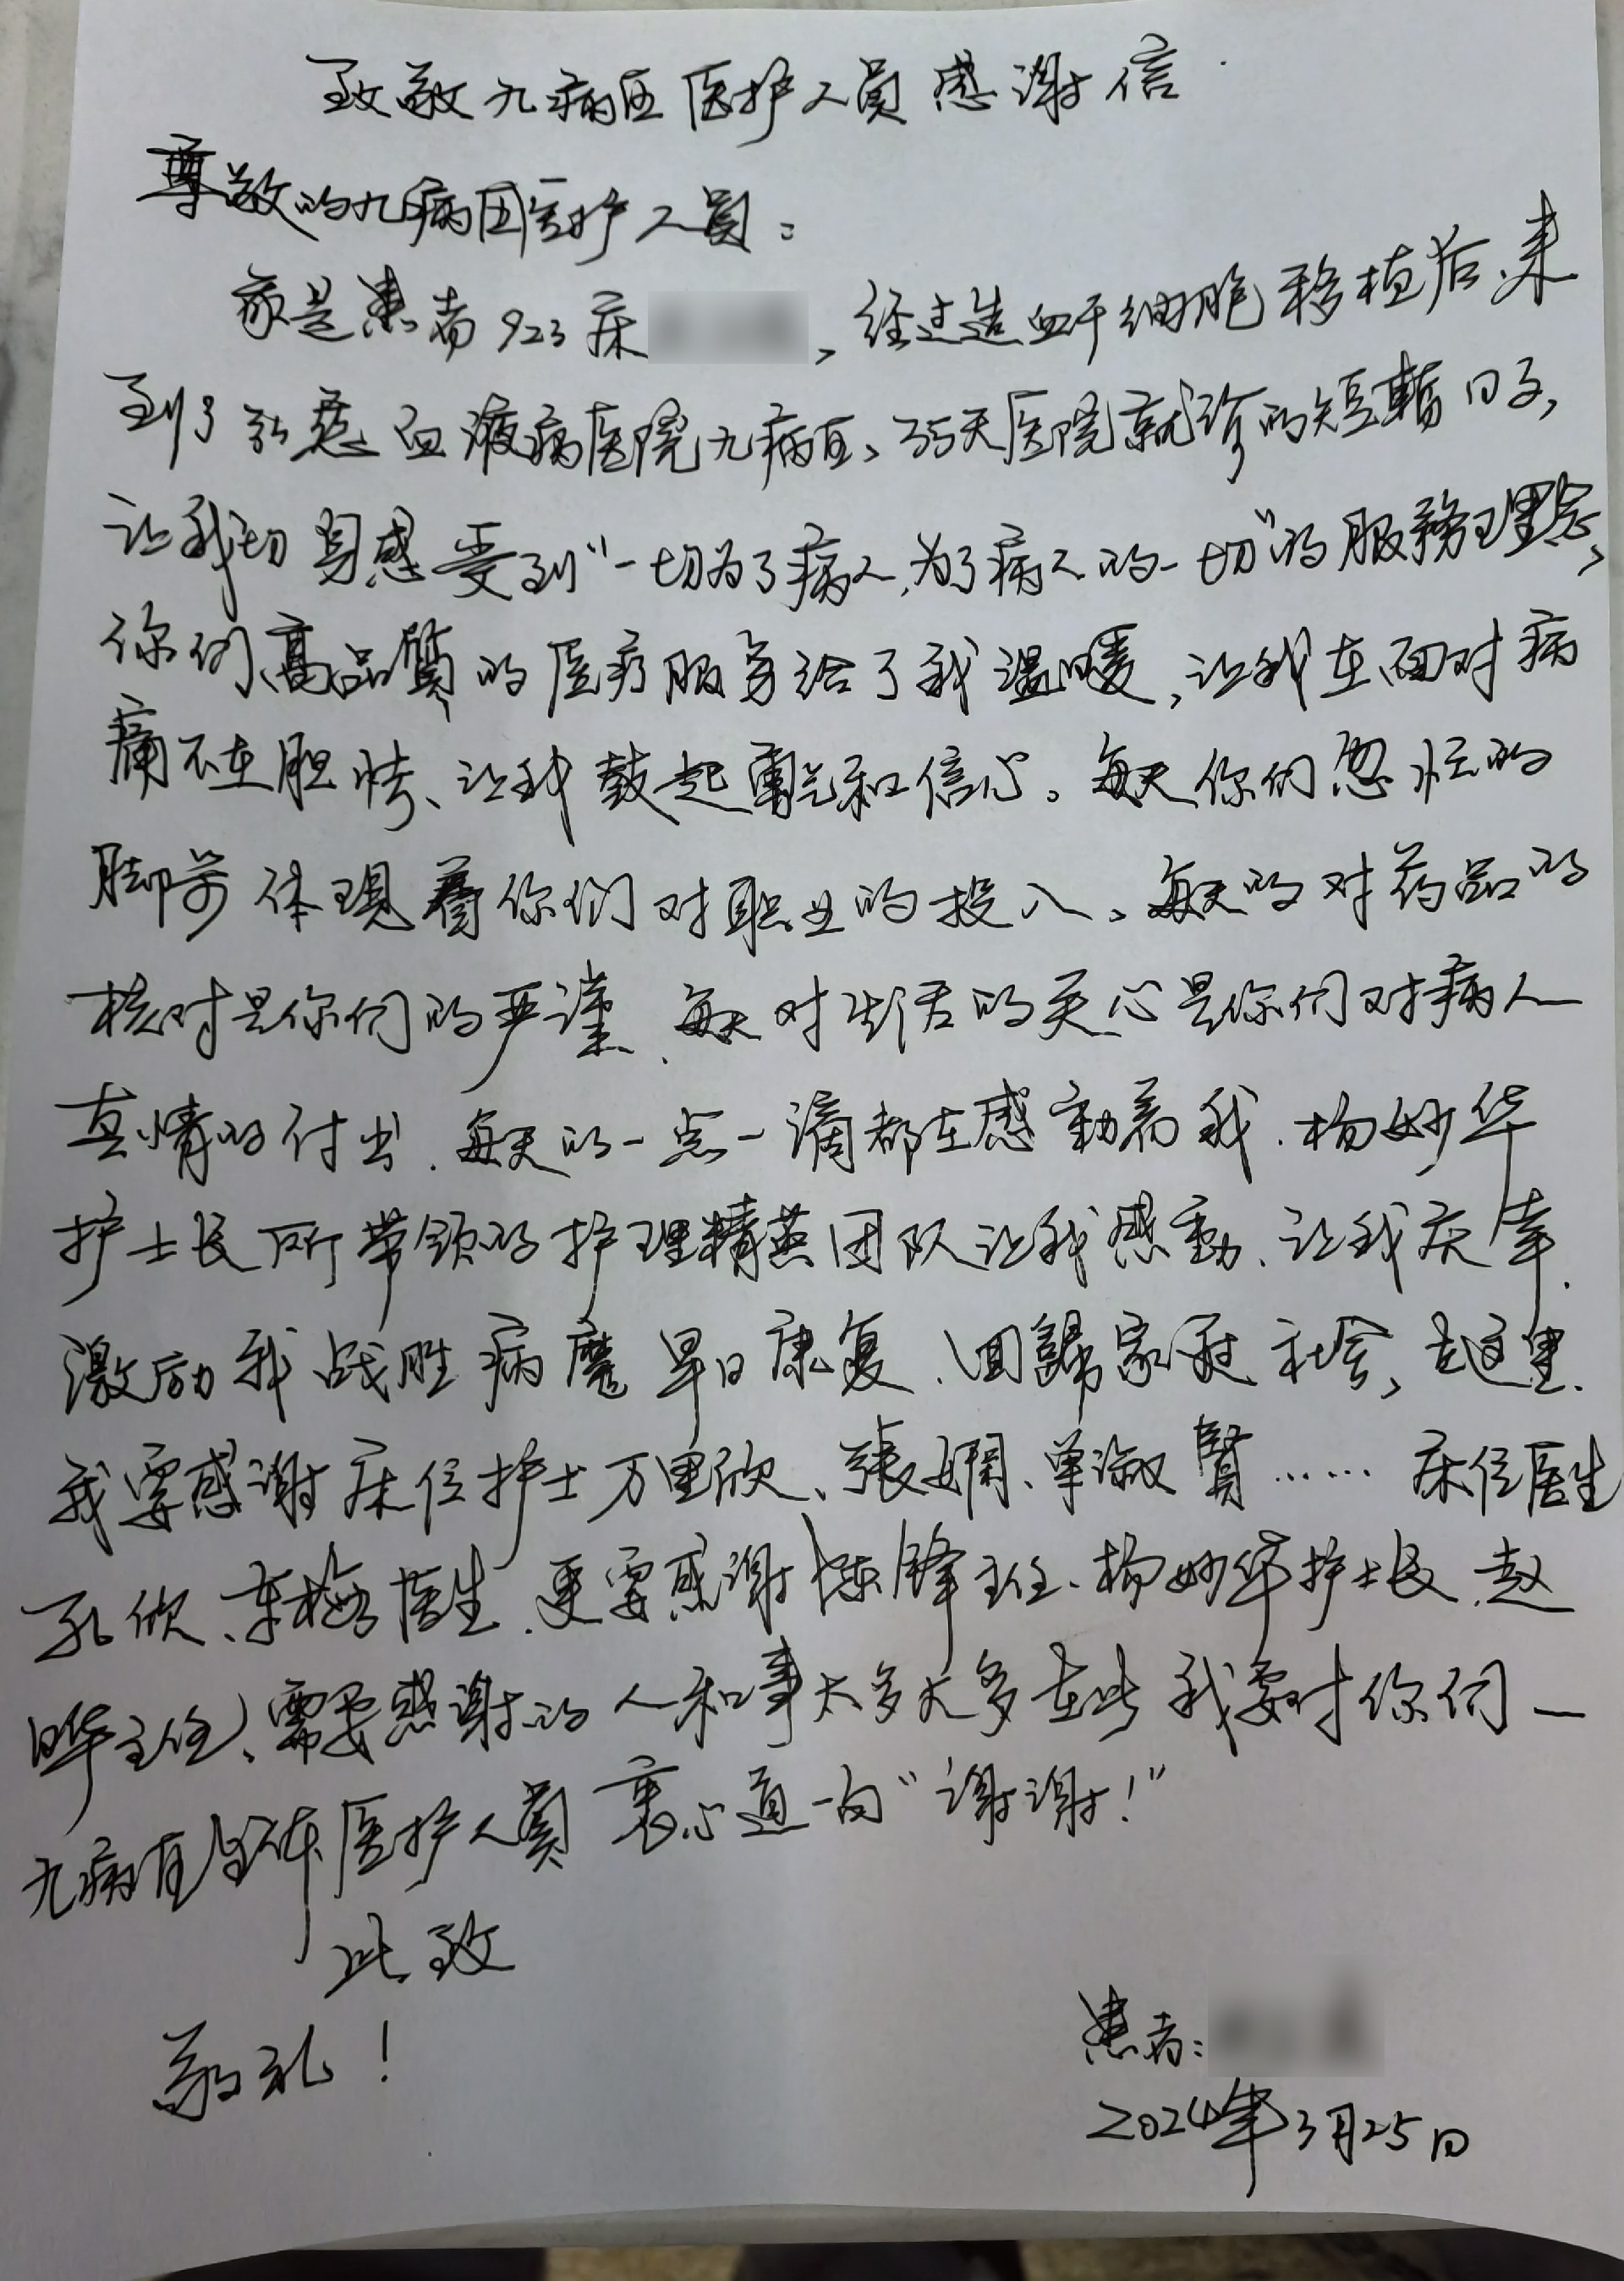 致敬九病区医护人员感谢信
尊敬的九病区医护人员：
我是患者923床，经过造血干细胞移植后、来
到了弘慈血液病医院九病区、35天医院就诊的短暂日子，
让我切身感受到“一切为了病人，为了病人的一切”的服務理念，
你们高品質的医疗服务给了我温暖，让我在面对病
痛不在胆怯、让我鼓起勇气和信心。每天你们忽忙的
脚步体现着你们对职业的投入。每天的对药品的
核对是你们的严谨、每天对生活的关心是你们对病人
真情的付出．每天的一点一滴都在感動着我．杨妙华
护士长所带领的护理精英团队让我感動、让我庆幸．
激励我战胜病魔早日康复、回歸家庭社会，在这里．
我要感谢床位护士万里欣、張娴、单淑賢……床位医生
孔欣、李梅医生．更要感谢陈锋主任、杨妙华护士长．赵
晔主任、需要感谢的人和事太多太多在此我要对你们一
九病区全体医护人員衷心道一句“谢谢！”
此致
敬礼！
患者：
2024年3月25日